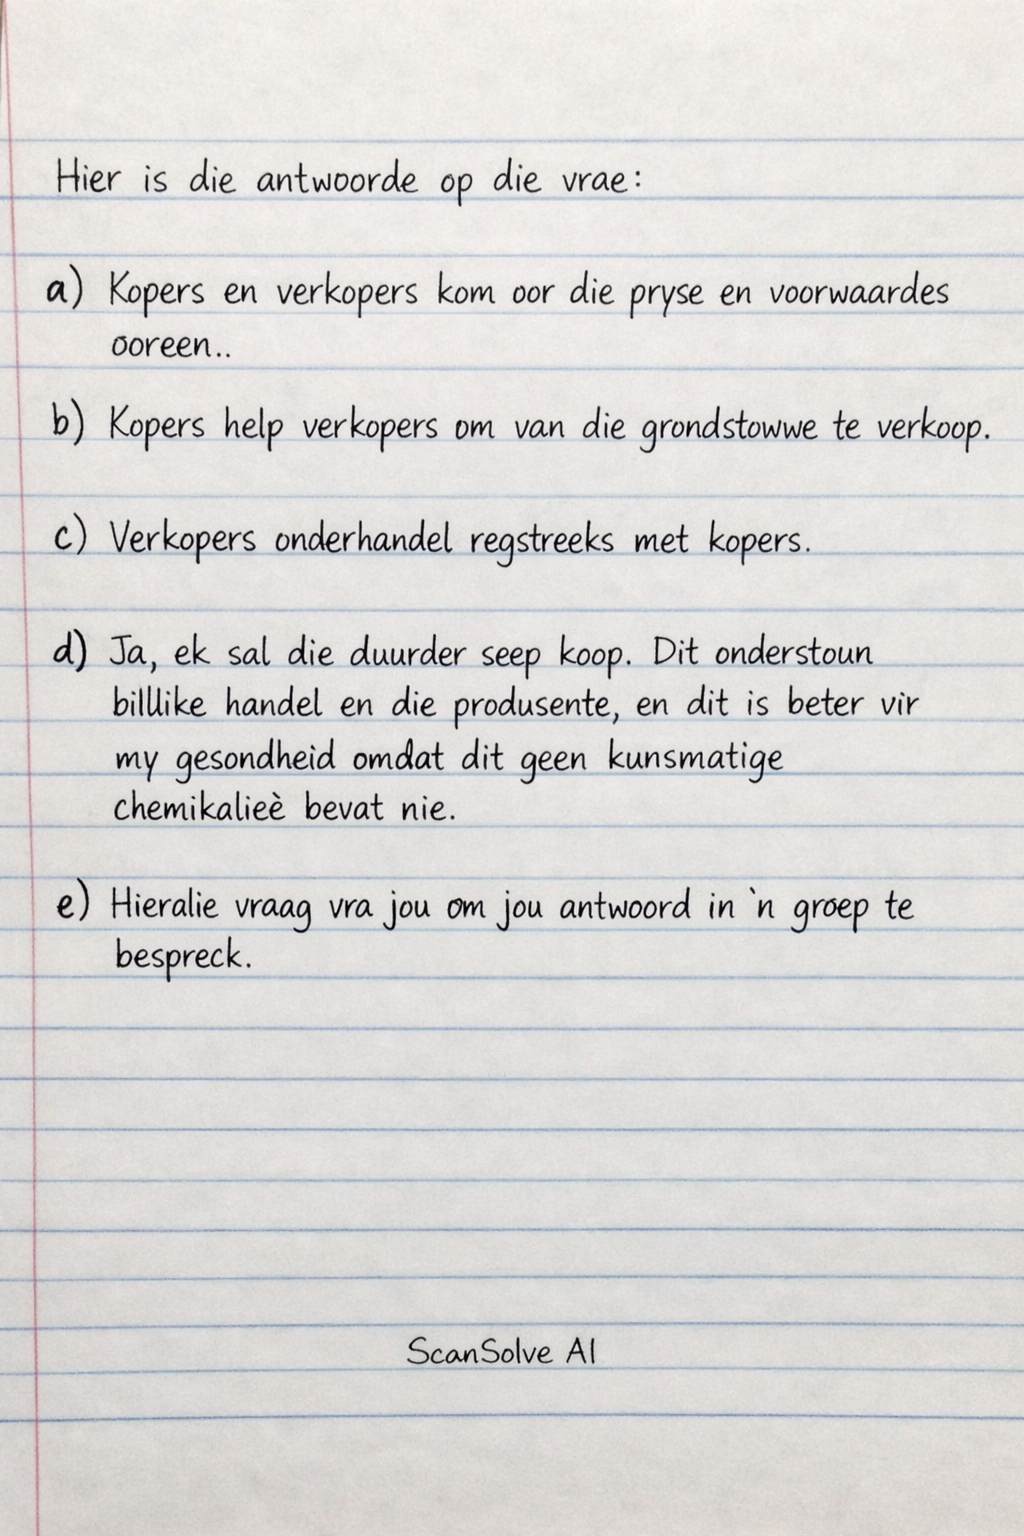 Hier is die antwoorde op die vrae:
a) Kopers en verkopers kom oor die pryse en voorwaardes
ooreen..
b) Kopers help verkopers om van die grondstowwe te verkoop.
c) Verkopers onderhandel regstreeks met kopers.
d) Ja, ek sal die duurder seep koop. Dit onderstoun
billlike handel en die produsente, en dit is beter vir
my gesondheid omdat dit geen kunsmatige
chemikalieè bevat nie.
e) Hieralie vraag vra jou om jou antwoord in `n groep te
bespreck.
ScanSolve AI